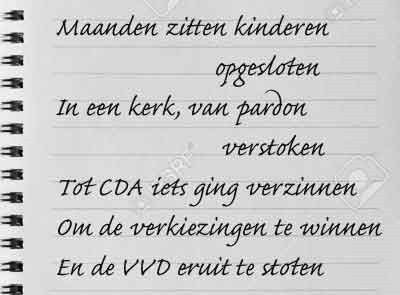 Maanden zitten kinderen
opgesloten
In een kerk, van pardon
verstoken
Tot CDA iets ging verzinnen
Om de verkiezingen te winnen
En de VVD eruit te stoten